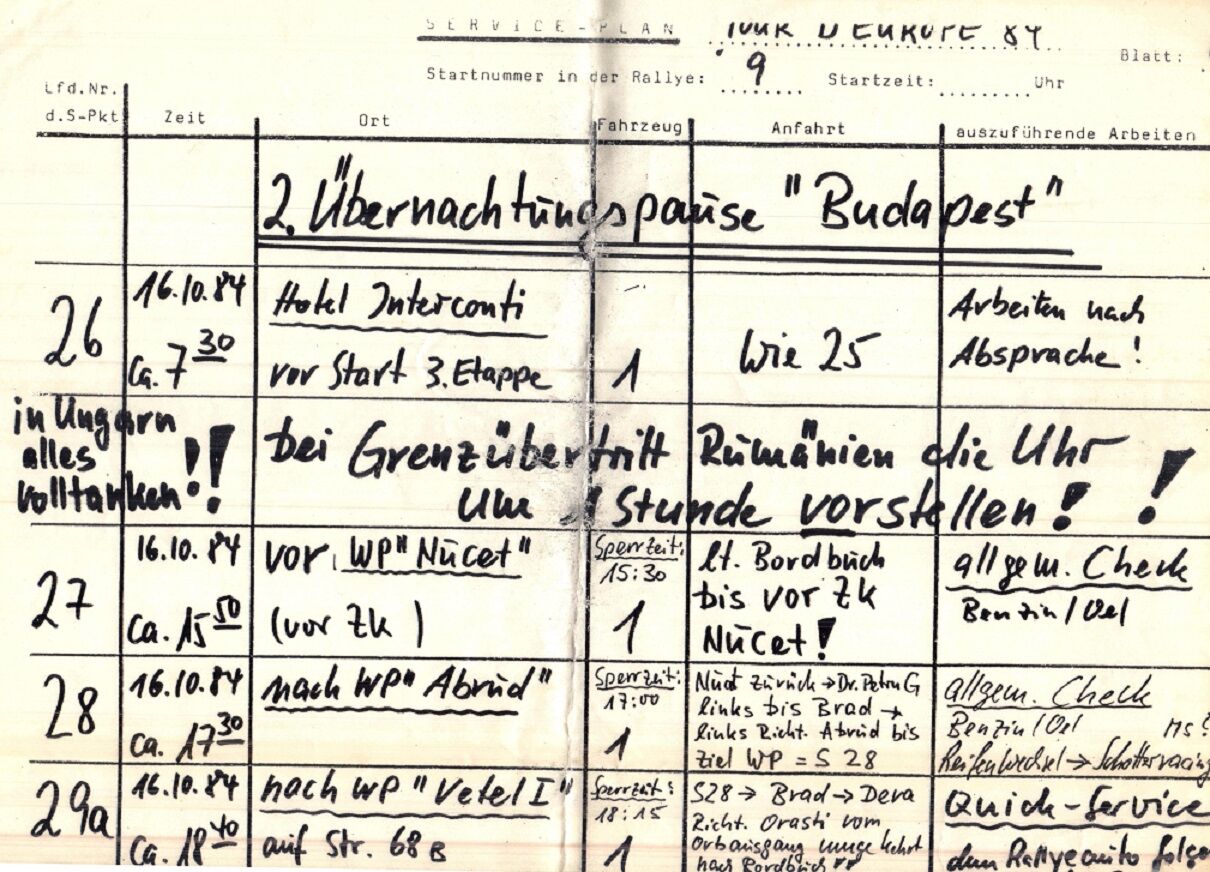 SERVICE-PLAN TOUR D'EUROPE 84
Blatt:
Startnummer in der Rallye: 9 Startzeit: Uhr
Lfd.Nr.
d.S-Pkt Zeit Ort Fahrzeug Anfahrt auszuführende Arbeiten
2. Übernachtungspause "Budapest"
26
16.10.84
ca. 7 30
Hotel Interconti
vor Start 3. Etappe
1
Wie 25
Arbeiten nach
Absprache!
in Ungarn
alles
volltanken!!
bei Grenzübertritt Rumänien die Uhr
um 1 Stunde vorstellen! !
27
16.10.84
ca. 15 50
vor WP "Nucet"
(vor ZK)
Sperrzeit:
15:30
1
lt. Bordbuch
bis vor ZK
Nucet!
allgem. Check
Benzin/Oel
28
16.10.84
ca. 17 30
nach WP "Abrud"
Sperrzeit:
17:00
1
Nucet zurück → Dr. Petru G
links bis Brad →
links Richt. Abrud bis
Ziel WP = S 28
allgem. Check
Benzin/Oel MS?
Reifenwechsel → Schotterracing
29a
16.10.84
ca. 18 40
nach WP "Vetel I"
auf Str. 68 B
Sperrzeit:
18:15
1
S28 → Brad → Deva
Richt. Orasti vom
Ortsausgang umgekehrt
nach Bordbuch
Quick-Service
dem Rallyeauto folgen